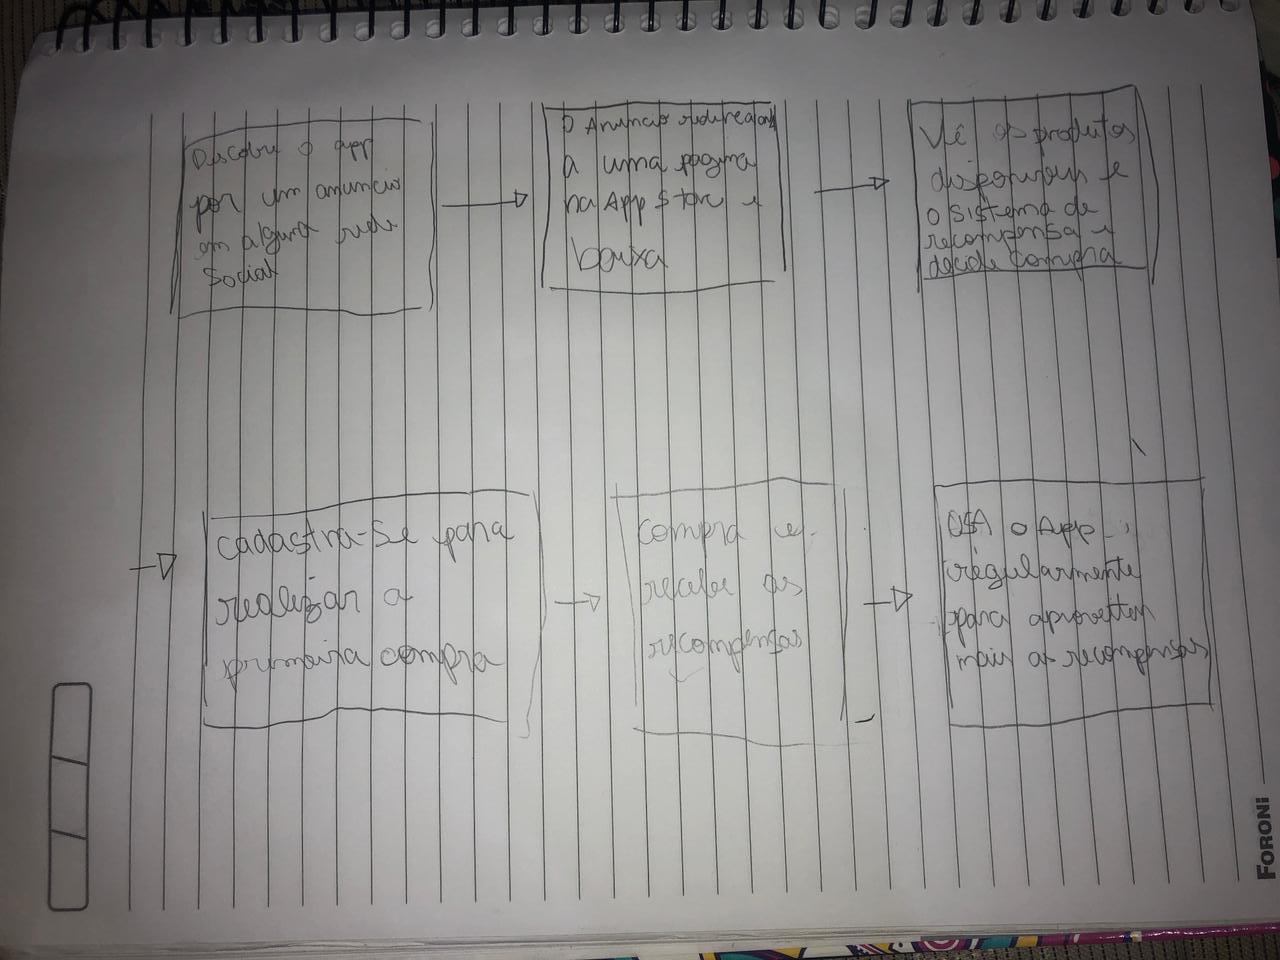 Discobre o app
por um anuncio
em alguma rede
social
O Anuncio redireciona
a uma pagina
na App Store e
baixa
Vê os produtos
disponiveis e
o sistema de
recompensa e
decide comprar
cadastra-se para
realizar a
primeira compra
compra e
recebe as
recompensas
USA o App
regularmente
para aproveitar
mais as recompensas
FORONI